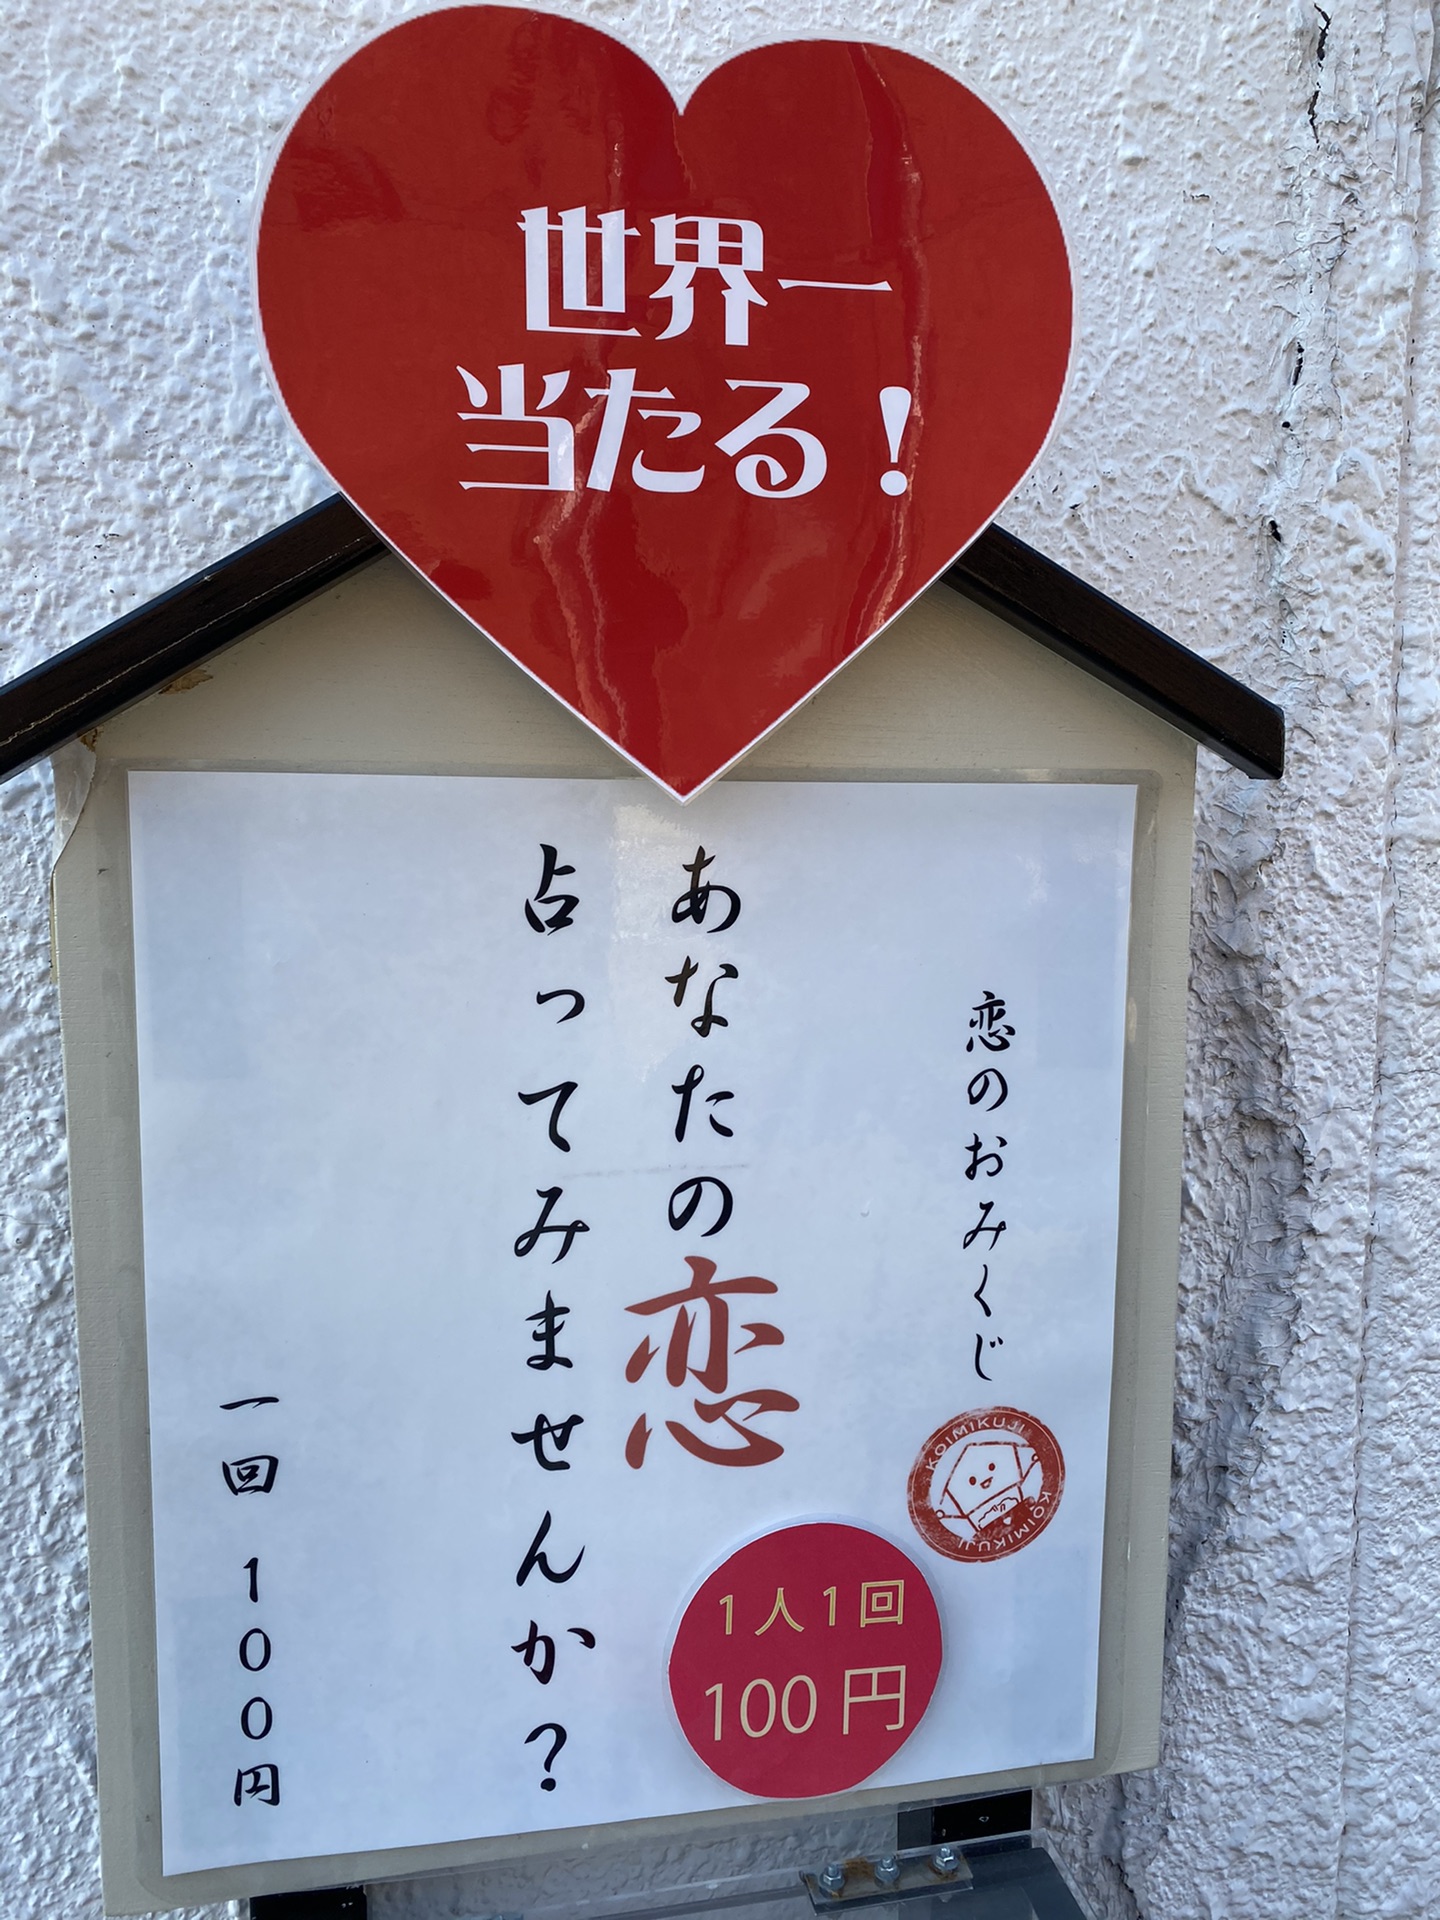 世界一
当たる！
恋のおみくじ
KOIMIKUJI
KOIMIKUJI
あなたの恋
占ってみませんか？
一回 100円
1人1回
100円